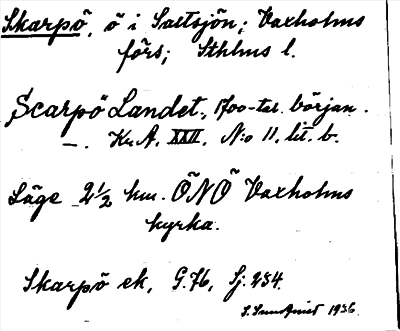 Skarpö, ö i Saltsjön; Vaxholms
förs; Sthlms l.
Scarpö Landet, 1700-tal. början.
—. Kr. A. XXII. N:o 11, lit. b.
Läge 2 1/2 km. ÖNÖ Vaxholms
kyrka.
Skarpö ek, G. 76, Sj. 254.
S. Sundqvist 1936